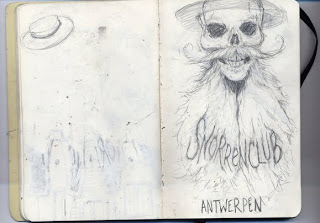 SNORRENCLUB
ANTWERPEN